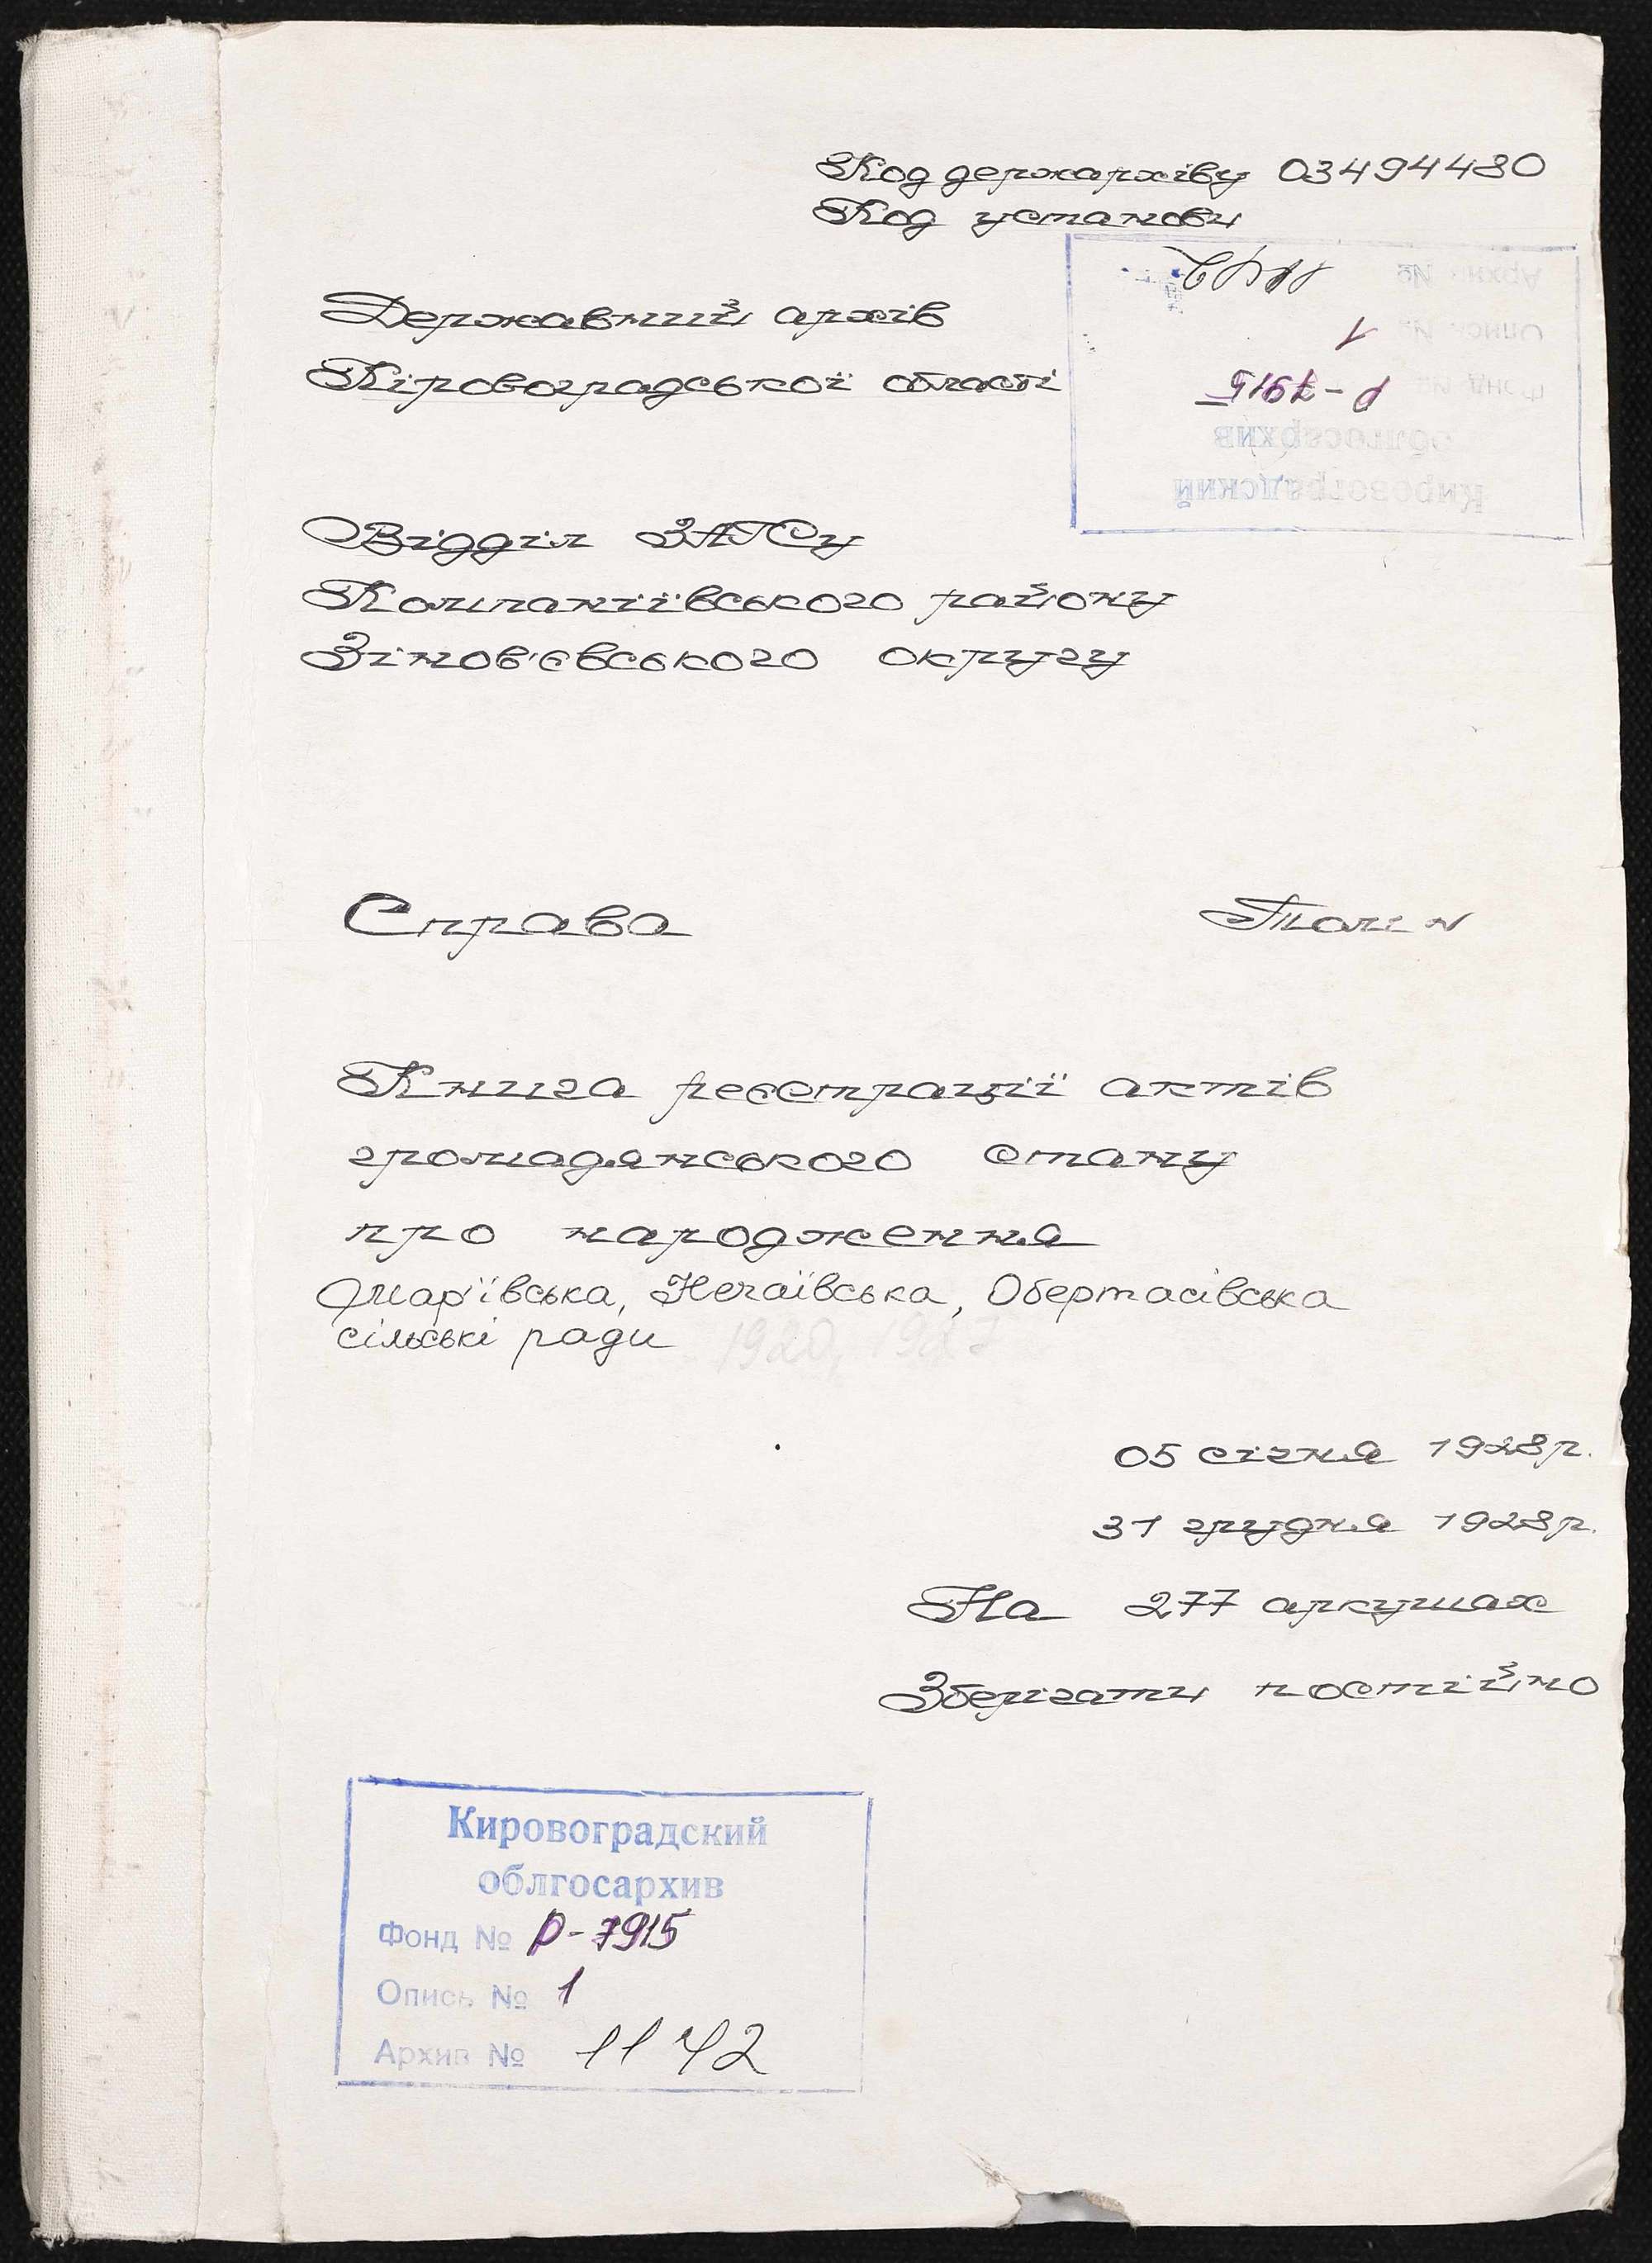 Код держархіву 03494480
Код установи
Архив № 1142
Опись № 1
Фонд № Р-7915
облгосархив
Кировоградский
Державний архів
Кіровоградської області
Відділ ЗАГСу
Компаніївського району
Зінов'євського округу
Справа Том №
Книга реєстрації актів
громадянського стану
про народження
Мар'ївська, Нечаївська, Обертасівська
сільські ради 1920, 1927
05 січня 1928р.
31 грудня 1928р.
На 277 аркушах
Зберігати постійно
Кировоградский
облгосархив
Фонд № Р-7915
Опись № 1
Архив № 1142